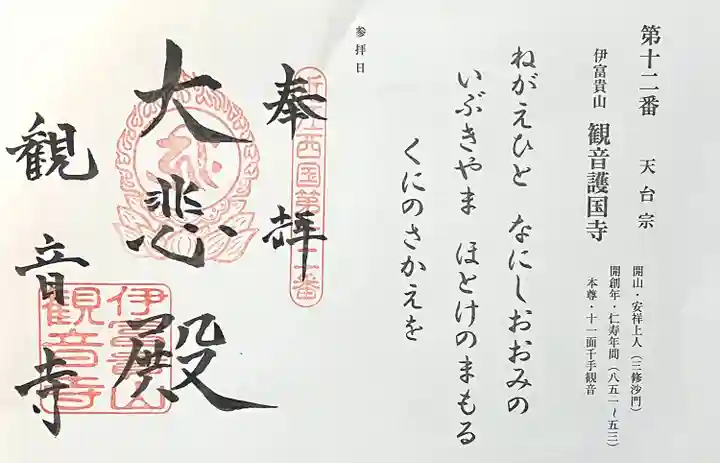 第十二番 天台宗
伊富貴山 観音護国寺
開山・安祥上人（三修沙門）
開創年・仁寿年間（八五一〜五三）
本尊・十一面千手観音
ねがえひと なにしおおみの
いぶきやま ほとけのまもる
くにのさかえを
参拝日
奉拝
近江西国第十二番
大悲殿
観音寺
伊富貴山
観音寺